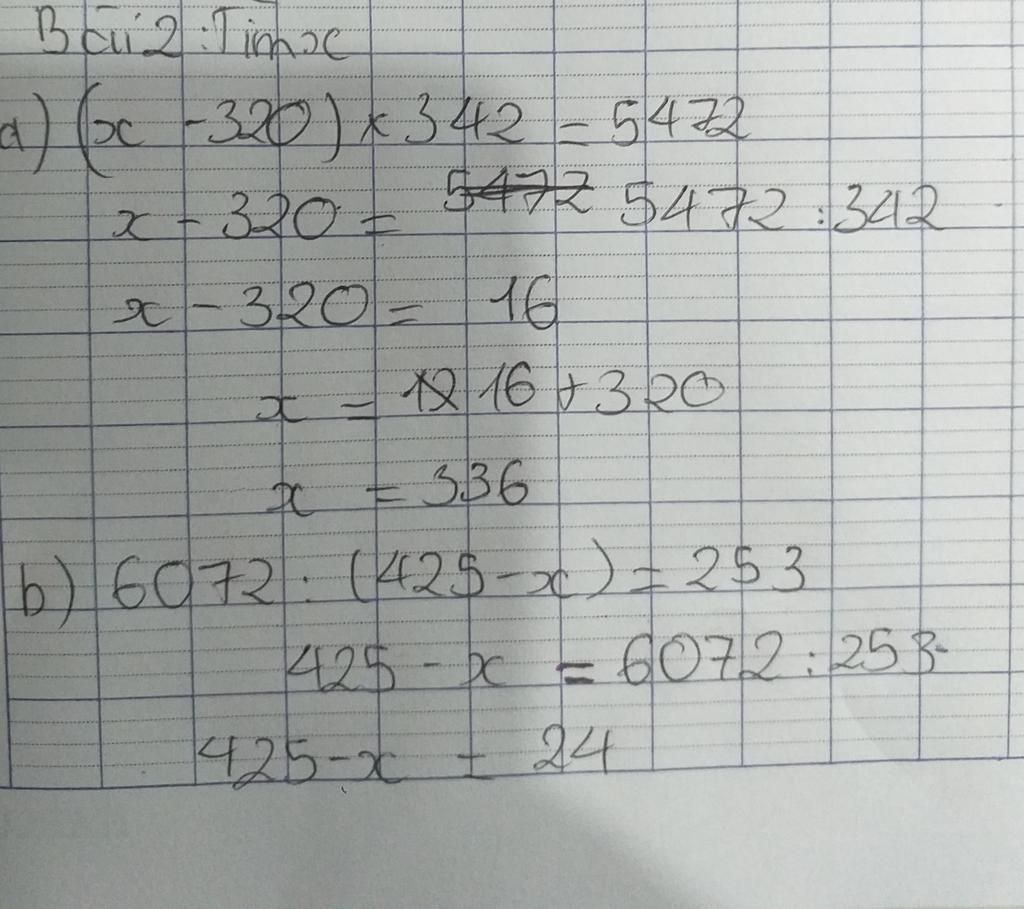 Bài 2: Tìm x
a) (x - 320) x 342 = 5472
x - 320 = 5472 5472 : 342
x - 320 = 16
x = 12 16 + 320
x = 336
b) 6072 : (425 - x) = 253
425 - x = 6072 : 253
425 - x = 24